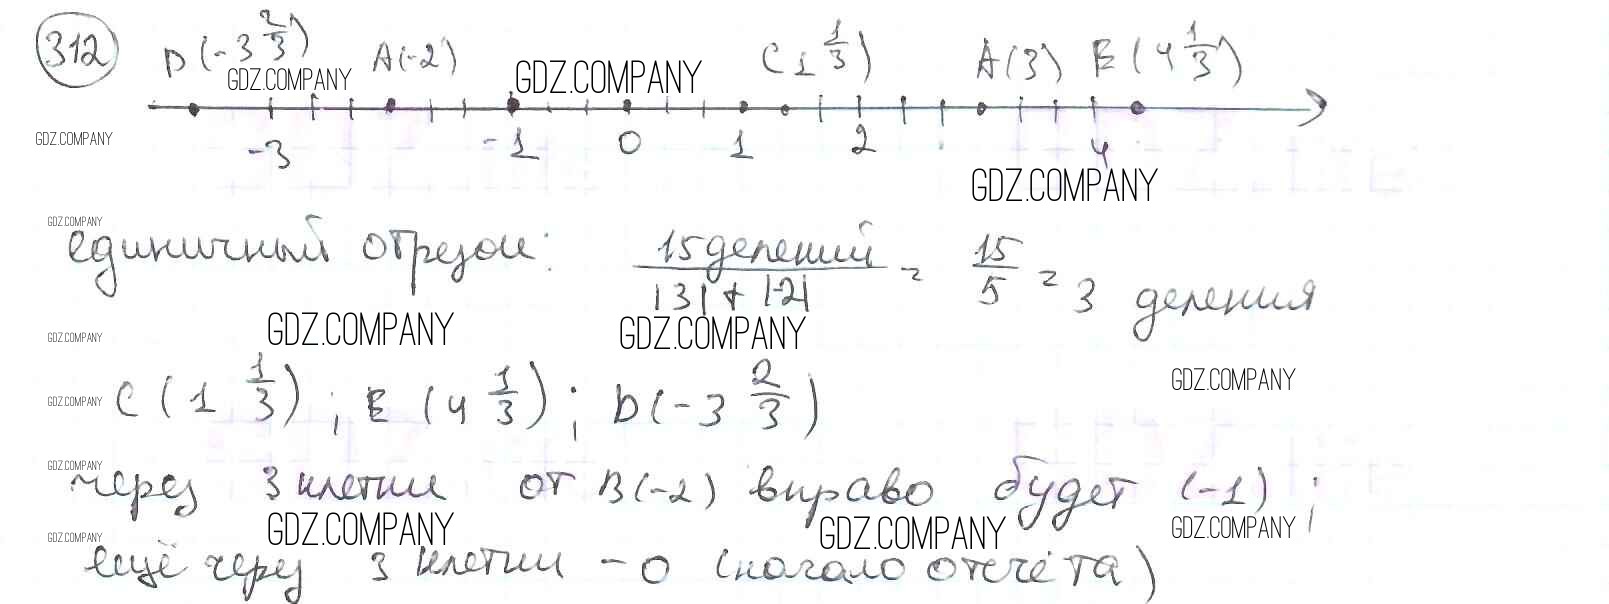 312 D(-3 2/3) A(-2) C 1 1/3) A(3) E(4 1/3)
GDZ.COMPANY GDZ.COMPANY
-3 -1 0 1 2 4
GDZ.COMPANY
GDZ.COMPANY
GDZ.COMPANY
единичный отрезок: 15 делений / |3| + |-2| = 15/5 = 3 деления
GDZ.COMPANY GDZ.COMPANY GDZ.COMPANY
GDZ.COMPANY
GDZ.COMPANY C(1 1/3); E(4 1/3); D(-3 2/3)
GDZ.COMPANY
через 3 клетки от B(-2) вправо будет (-1);
GDZ.COMPANY GDZ.COMPANY GDZ.COMPANY GDZ.COMPANY
ещё через 3 клетки - 0 (начало отсчёта)